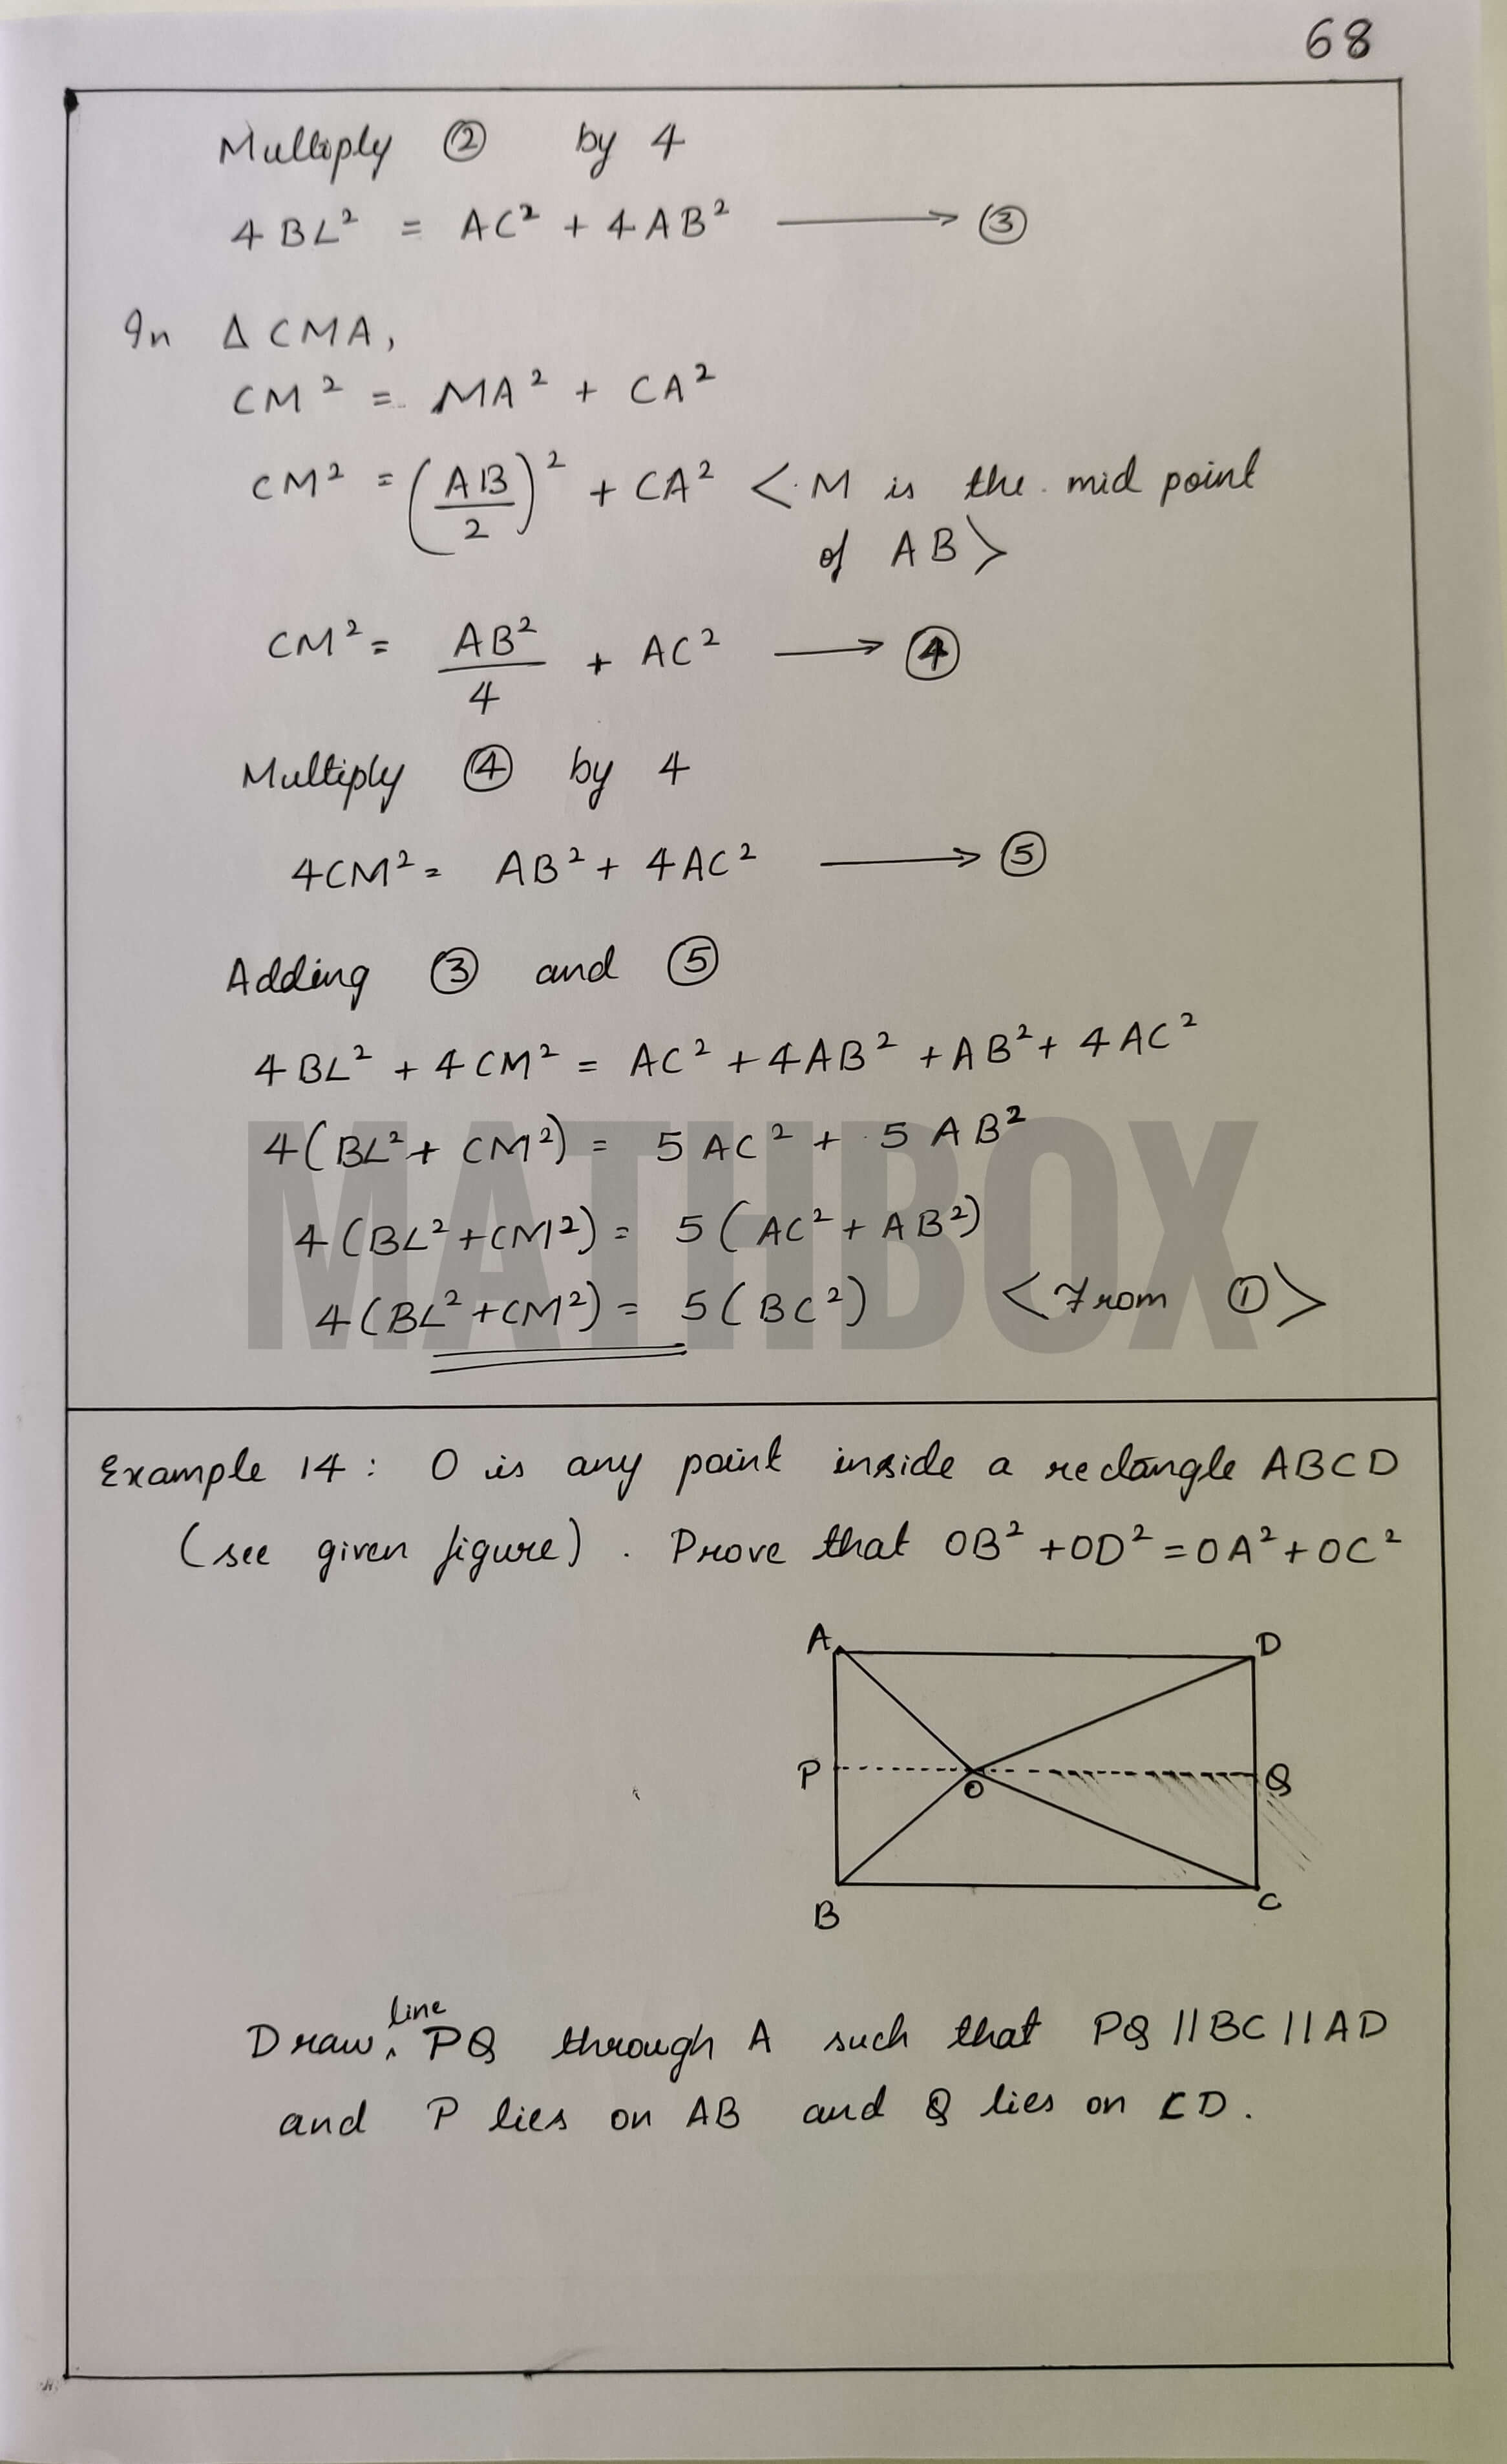 68
Multiply ② by 4
4BL² = AC² + 4AB² ⟶ ③
In Δ CMA,
CM² = MA² + CA²
CM² = (AB/2)² + CA² <M is the mid point
of AB>
CM² = AB²/4 + AC² ⟶ ④
Multiply ④ by 4
4CM² = AB² + 4AC² ⟶ ⑤
Adding ③ and ⑤
4BL² + 4CM² = AC² + 4AB² + AB² + 4AC²
4(BL² + CM²) = 5AC² + 5AB²
4(BL² + CM²) = 5(AC² + AB²)
4(BL² + CM²) = 5(BC²) <From ①>
MATHBOX
Example 14: O is any point inside a rectangle ABCD
(see given figure). Prove that OB² + OD² = OA² + OC²
A D
P O Q
B C
Draw line PQ through A such that PQ || BC || AD
and P lies on AB and Q lies on CD.